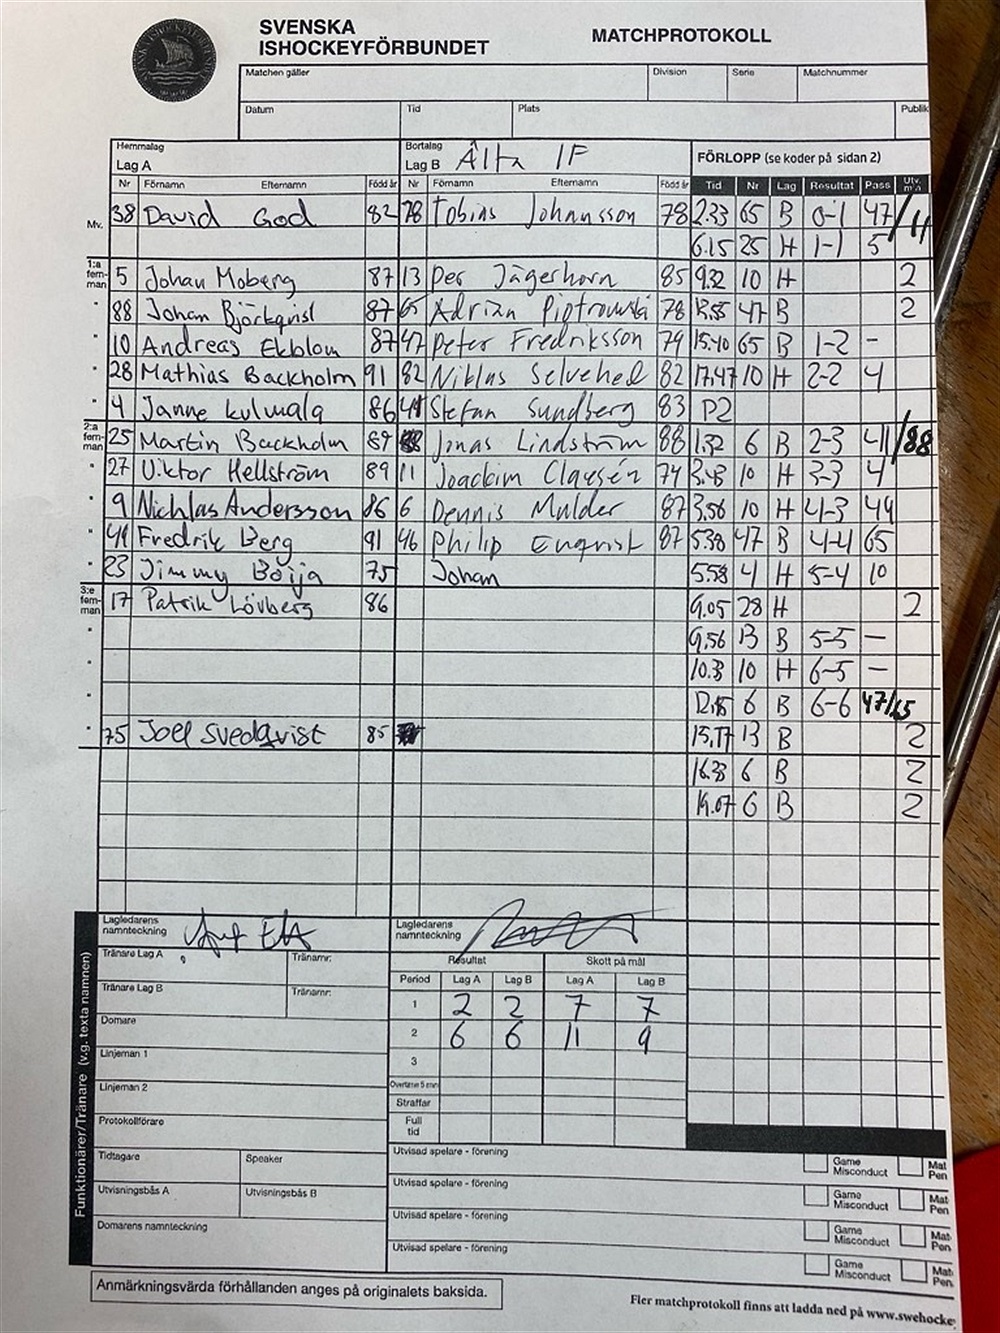 SVENSKA
ISHOCKEYFÖRBUNDET
MATCHPROTOKOLL
Matchen gäller Division Serie Matchnummer
Datum Tid Plats Publik
Hemmalag Bortalag
Lag A Lag B Älta IF FÖRLOPP (se koder på sidan 2)
Nr Förnamn Efternamn Född år Nr Förnamn Efternamn Född år Tid Nr Lag Resultat Pass Utv. min
Mv. 38 David God 82 78 Tobias Johansson 78 2.33 65 B 0-1 47/11
6.15 25 H 1-1 5
1:a fem-man 5 Johan Moberg 87 13 Per Jägerhorn 85 9.32 10 H 2
" 88 Johan Björkqvist 87 65 Adrian Piotrowski 78 13.55 47 B 2
" 10 Andreas Ekblom 87 47 Peter Fredriksson 79 15.40 65 B 1-2 -
" 28 Mathias Backholm 91 82 Niklas Selvehed 82 17.47 10 H 2-2 4
" 4 Janne Kulmala 86 44 Stefan Sundberg 83 P2
2:a fem-man 25 Martin Backholm 89 88 Jonas Lindström 88 1.32 6 B 2-3 41/88
" 27 Viktor Hellström 89 11 Joachim Claesén 74 3.43 10 H 3-3 4
" 9 Nichlas Andersson 86 6 Dennis Mulder 87 3.56 10 H 4-3 44
" 49 Fredrik Berg 91 46 Philip Enqvist 87 5.38 47 B 4-4 65
" 23 Jimmy Böija 75 Johan 5.58 4 H 5-4 10
3:e fem-man 17 Patrik Lövberg 86 9.05 28 H 2
" 9.56 13 B 5-5 -
" 10.31 10 H 6-5 -
" 12.15 6 B 6-6 47/65
" 75 Joel Svedqvist 85 15.17 13 B 2
16.33 6 B 2
19.07 6 B 2
Lagledarens namnteckning Lagledarens namnteckning
Tränare Lag A Tränarnr: Resultat Skott på mål
Period Lag A Lag B Lag A Lag B
Tränare Lag B Tränarnr: 1 2 2 7 7
Domare 2 6 6 11 9
Linjeman 1 3
Linjeman 2 Overtime 5 min
Straffar
Protokollförare Full tid
Tidtagare Speaker Utvisad spelare - förening Game Misconduct Mat Pen
Utvisningsbås A Utvisningsbås B Utvisad spelare - förening Game Misconduct Mat Pen
Domarens namnteckning Utvisad spelare - förening Game Misconduct Mat Pen
Utvisad spelare - förening Game Misconduct Mat Pen
Funktionärer/Tränare (v.g. texta namnen)
Anmärkningsvärda förhållanden anges på originalets baksida.
Fler matchprotokoll finns att ladda ned på www.swehocke